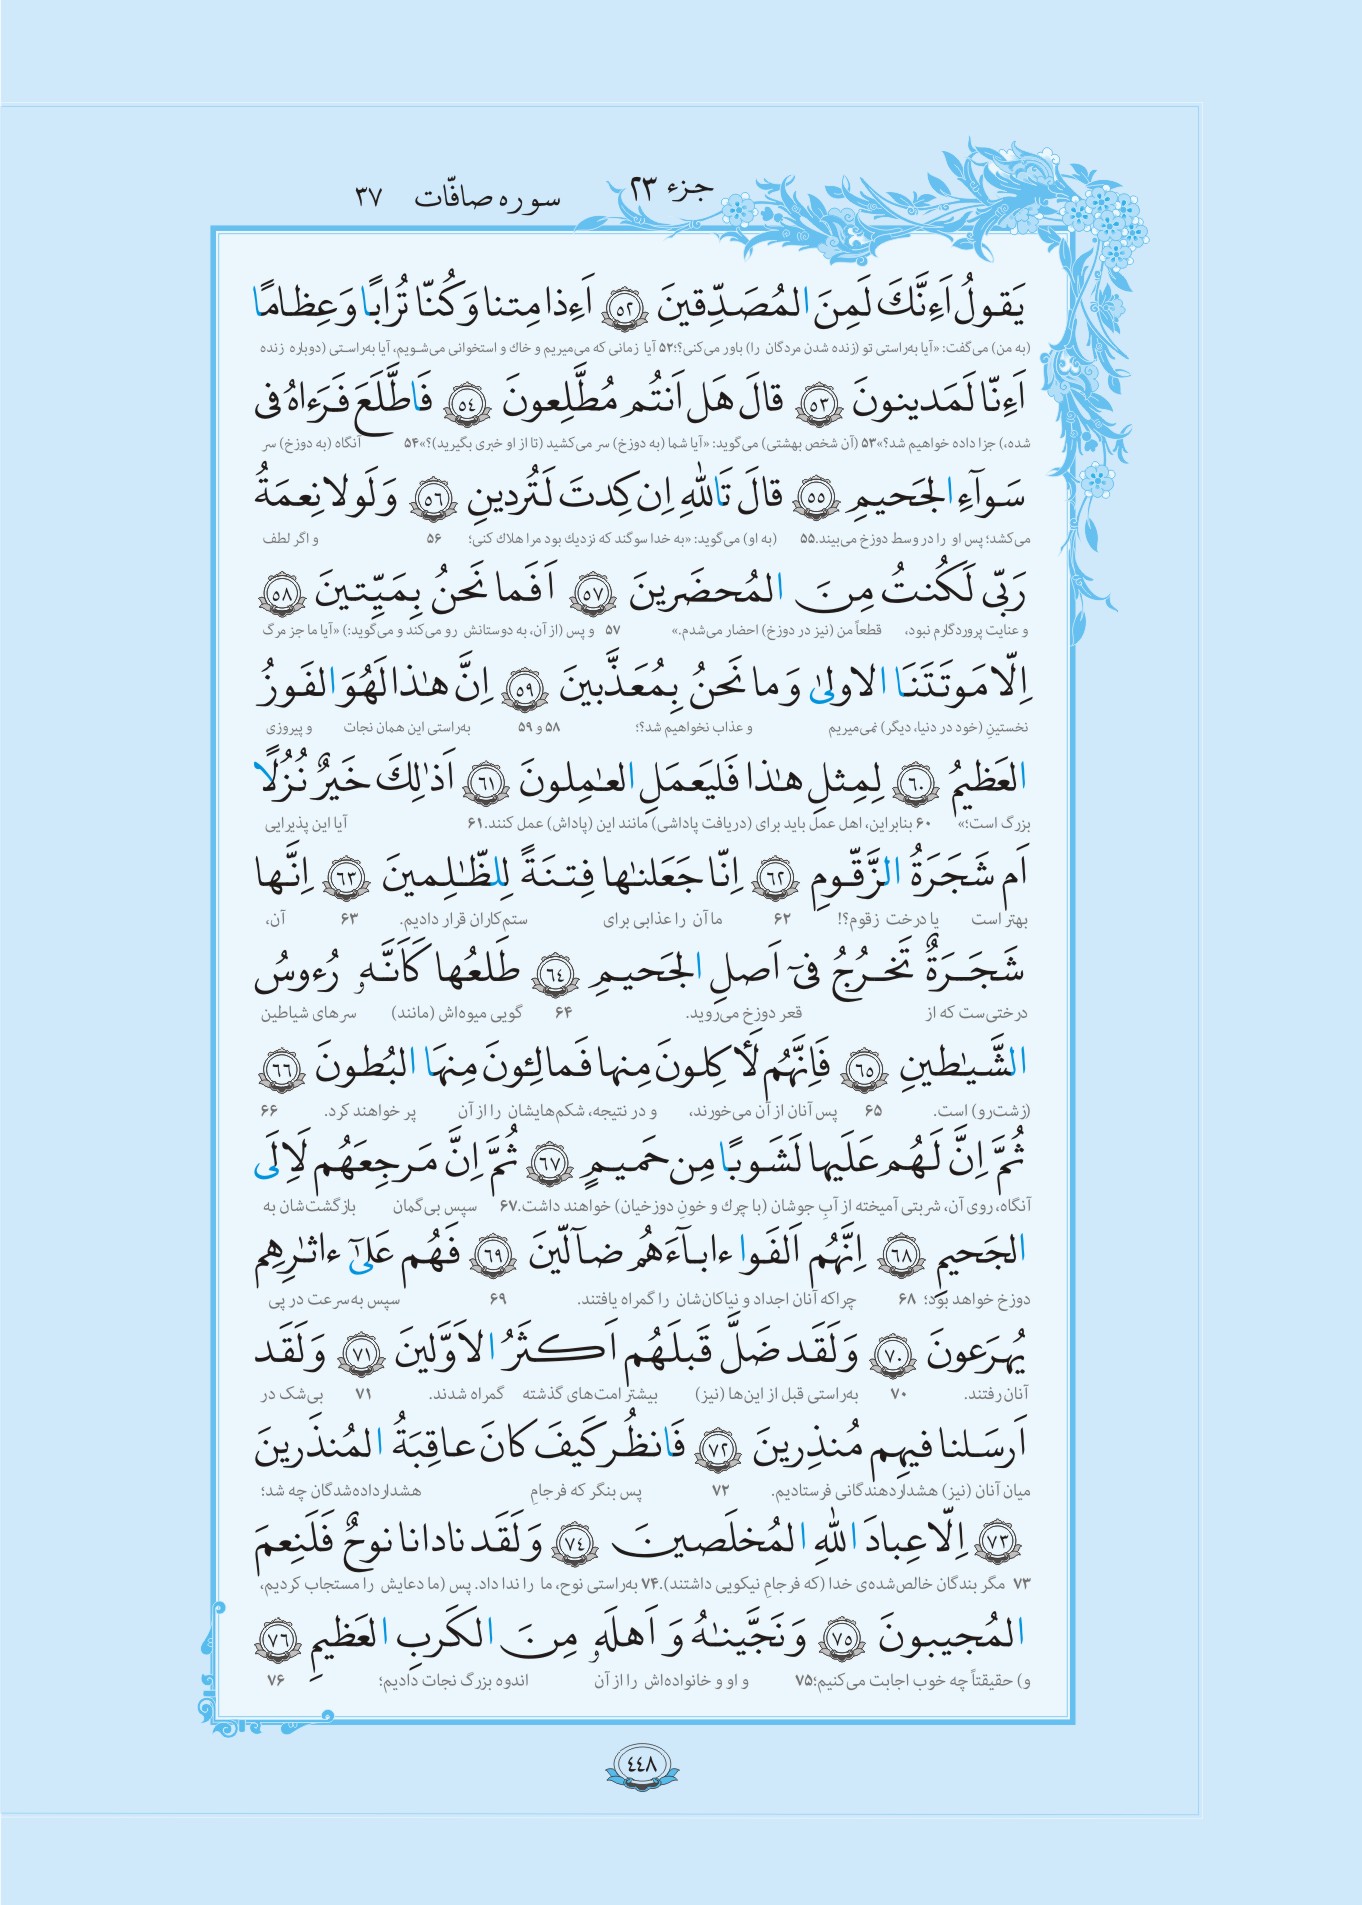 جزء ۲۳
سوره صافّات ۳۷
يَقولُ اَءِنَّكَ لَمِنَ المُصَدِّقينَ ٥٢ اَءِذا مِتنا وَ كُنّا تُرابًا وَ عِظامًا
(به من) می‌گفت: «آیا به‌راستی تو (زنده شدن مردگان را) باور می‌کنی؟؛۵۲ آیا زمانی که می‌میریم و خاك و استخوانی می‌شویم، آیا به‌راستی (دوباره زنده
اَءِنّا لَمَدينونَ ٥٣ قالَ هَل اَنتُم مُطَّلِعونَ ٥٤ فَاطَّلَعَ فَرَءاهُ فى
شده،) جزا داده خواهیم شد؟»۵۳ (آن شخص بهشتی) می‌گوید: «آیا شما (به دوزخ) سر می‌کشید (تا از او خبری بگیرید)؟»۵۴ آنگاه (به دوزخ) سر
سَوآءِ الجَحيمِ ٥٥ قالَ تَاللهِ اِن كِدتَ لَتُردينِ ٥٦ وَ لَولا نِعمَةُ
می‌کشد؛ پس او را در وسط دوزخ می‌بیند.۵۵ (به او) می‌گوید: «به خدا سوگند که نزدیك بود مرا هلاك کنی؛ ۵۶ و اگر لطف
رَبّى لَكُنتُ مِنَ المُحضَرينَ ٥٧ اَفَما نَحنُ بِمَيِّتينَ ٥٨
و عنایت پروردگارم نبود، قطعاً من (نیز در دوزخ) احضار می‌شدم.» ۵۷ و پس (از آن، به دوستانش رو می‌کند و می‌گوید:) «آیا ما جز مرگ
اِلّا مَوتَتَنَا الاولىٰ وَ ما نَحنُ بِمُعَذَّبينَ ٥٩ اِنَّ هٰذا لَهُوَ الفَوزُ
نخستینِ (خود در دنیا، دیگر) نمی‌میریم و عذاب نخواهیم شد؟؛ ۵۸ و ۵۹ به‌راستی این همان نجات و پیروزی
العَظيمُ ٦٠ لِمِثلِ هٰذا فَليَعمَلِ العٰمِلونَ ٦١ اَذٰلِكَ خَيرٌ نُزُلًا
بزرگ است؛» ۶۰ بنابراین، اهل عمل باید برای (دریافت پاداشی) مانند این (پاداش) عمل کنند.۶۱ آیا این پذیرایی
اَم شَجَرَةُ الزَّقّومِ ٦٢ اِنّا جَعَلنٰها فِتنَةً لِلظّٰلِمينَ ٦٣ اِنَّها
بهتر است یا درخت زقوم؟! ۶۲ ما آن را عذابی برای ستم‌کاران قرار دادیم. ۶۳ آن،
شَجَرَةٌ تَخرُجُ فىٓ اَصلِ الجَحيمِ ٦٤ طَلعُها كَاَنَّهٗ رُءوسُ
درختی‌ست که از قعر دوزخ می‌روید. ۶۴ گویی میوه‌اش (مانند) سرهای شیاطین
الشَّيٰطينِ ٦٥ فَاِنَّهُم لَأٰكِلونَ مِنها فَمالِئونَ مِنهَا البُطونَ ٦٦
(زشت‌رو) است. ۶۵ پس آنان از آن می‌خورند، و در نتیجه، شکم‌هایشان را از آن پر خواهند کرد. ۶۶
ثُمَّ اِنَّ لَهُم عَلَيها لَشَوبًا مِن حَميمٍ ٦٧ ثُمَّ اِنَّ مَرجِعَهُم لَاِلَى
آنگاه، روی آن، شربتی آمیخته از آبِ جوشان (با چرك و خونِ دوزخیان) خواهند داشت.۶۷ سپس بی‌گمان بازگشت‌شان به
الجَحيمِ ٦٨ اِنَّهُم اَلفَوا ءابآءَهُم ضآلّينَ ٦٩ فَهُم عَلىٰٓ ءاثٰرِهِم
دوزخ خواهد بود؛ ۶۸ چراکه آنان اجداد و نیاکان‌شان را گمراه یافتند. ۶۹ سپس به‌سرعت در پی
يُهرَعونَ ٧٠ وَ لَقَد ضَلَّ قَبلَهُم اَكثَرُ الاَوَّلينَ ٧١ وَ لَقَد
آنان رفتند. ۷۰ به‌راستی قبل از این‌ها (نیز) بیشتر امت‌های گذشته گمراه شدند. ۷۱ بی‌شک در
اَرسَلنا فيهِم مُنذِرينَ ٧٢ فَانظُر كَيفَ كانَ عاقِبَةُ المُنذَرينَ
میان آنان (نیز) هشداردهندگانی فرستادیم. ۷۲ پس بنگر که فرجامِ هشدارداده‌شدگان چه شد؛
٧٣ اِلّا عِبادَ اللهِ المُخلَصينَ ٧٤ وَ لَقَد نادانا نوحٌ فَلَنِعمَ
۷۳ مگر بندگان خالص‌شده‌ی خدا (که فرجامِ نیکویی داشتند).۷۴ به‌راستی نوح، ما را ندا داد. پس (ما دعایش را مستجاب کردیم،
المُجيبونَ ٧٥ وَ نَجَّينٰهُ وَ اَهلَهٗ مِنَ الكَربِ العَظيمِ ٧٦
و) حقیقتاً چه خوب اجابت می‌کنیم؛۷۵ و او و خانواده‌اش را از آن اندوه بزرگ نجات دادیم؛ ۷۶
٤٤٨